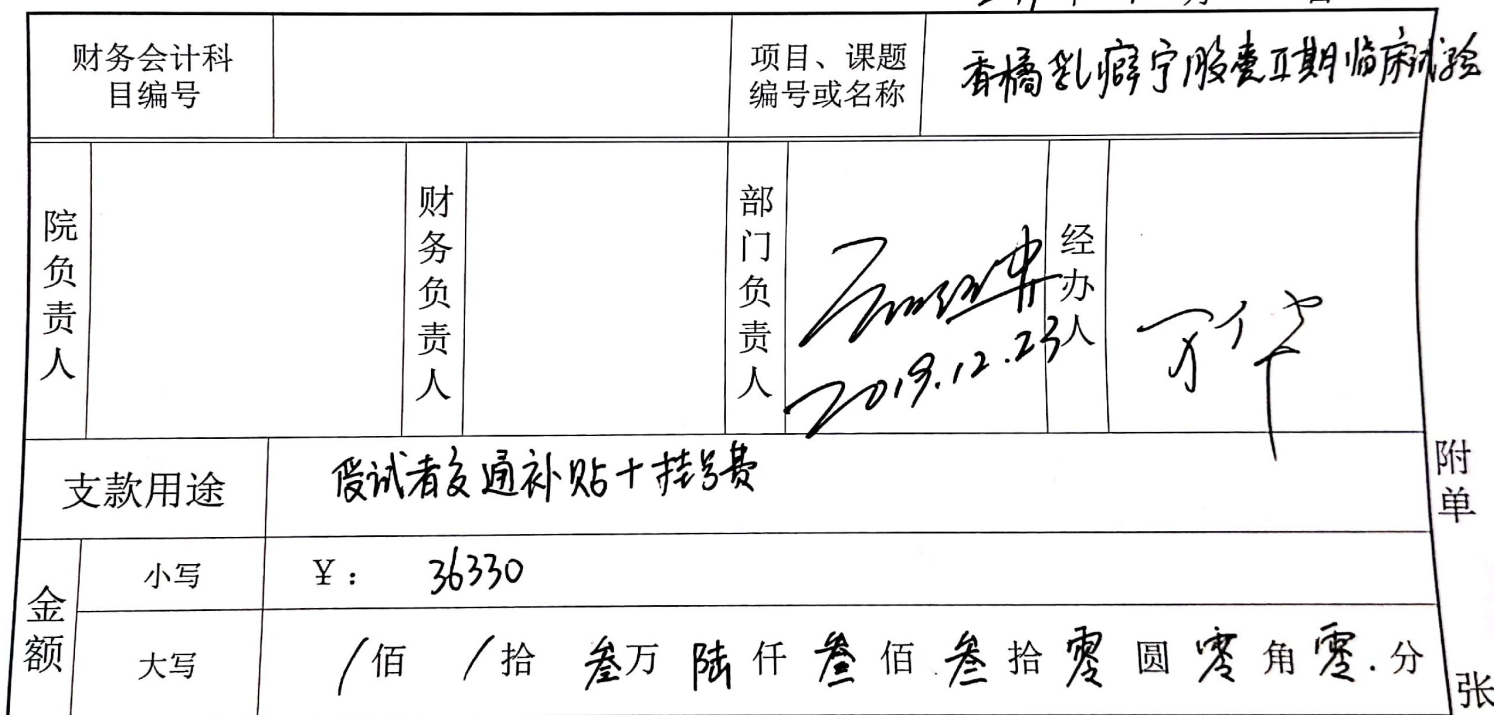 财务会计科
目编号
项目、课题
编号或名称
香橘乳癖宁胶囊II期临床试验
院负责人
财务负责人
部门负责人
2019.12.23
经办人
支款用途
受试者交通补贴+挂号费
附单
金额
小写
¥： 36330
大写
/佰 /拾 叁万 陆仟 叁佰 叁拾 零圆 零角 零分
张